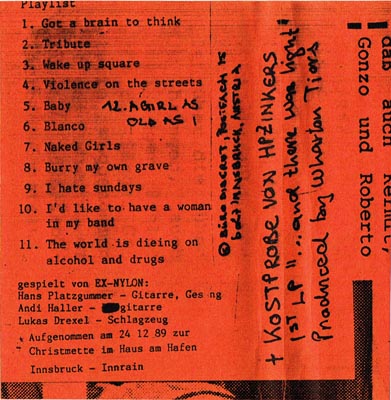 Playlist
1. Got a brain to think
2. Tribute
3. Wake up square
4. Violence on the streets
5. Baby
12. A GIRL AS
OLD AS I
6. Blanco
7. Naked Girls
8. Burry my own grave
9. I hate sundays
10. I'd like to have a woman
in my band
11. The world is dieing on
alcohol and drugs
gespielt von EX-NYLON:
Hans Platzgummer - Gitarre, Ges ng
Andi Haller - gitarre
Lukas Drexel - Schlagzeug
Aufgenommen am 24 12 89 zur
Christmette im Haus am Hafen
Innsbruck - Innrain
INNSBRUCK, AUSTRIA
+ KOSTPROBE VON HPZINKERS
1ST LP "...and there was light"
Produced by Wharton Tiers
Gonzo und Roberto